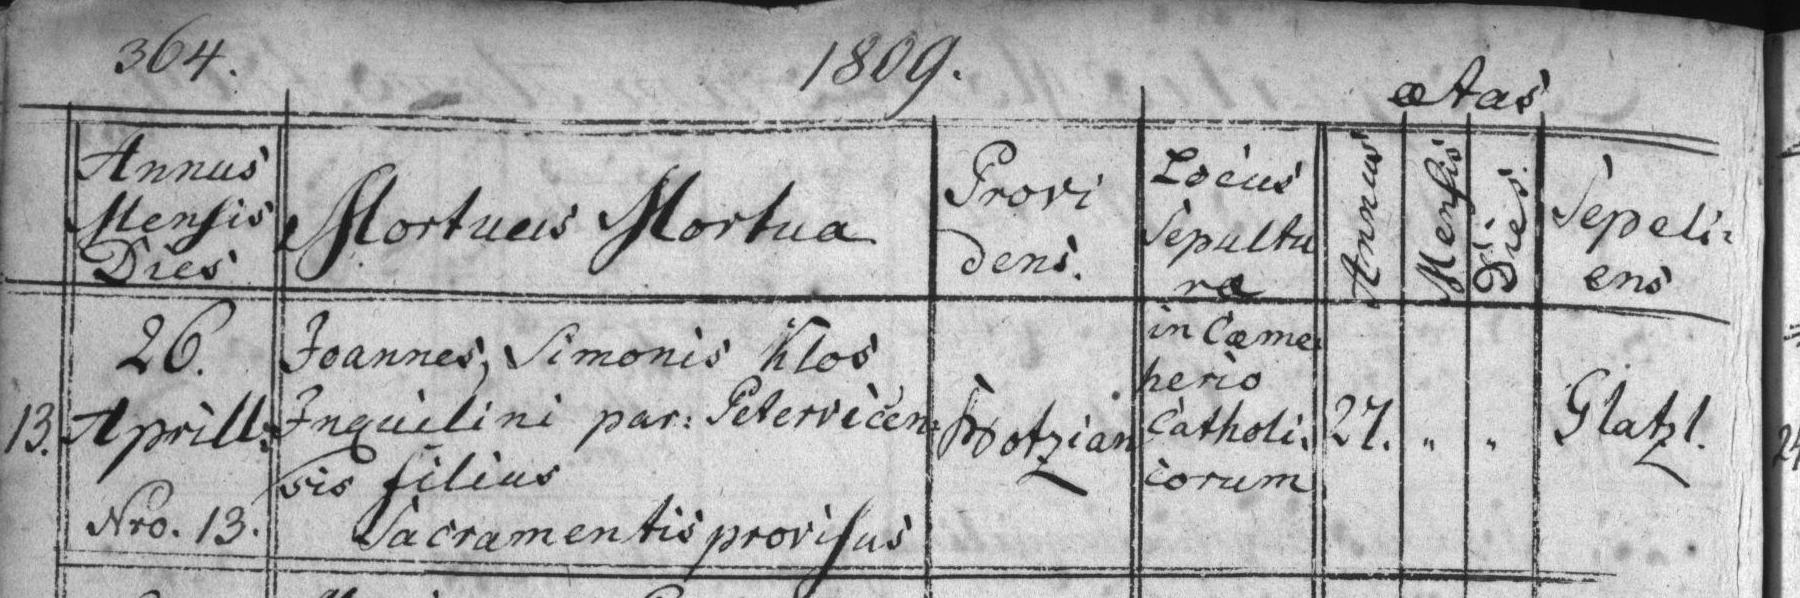 364.
1809.
æAtas
Annus
Mensis
Dies
Mortuus Mortua
Provi
dens.
Locus
Sepultu
ræ
Annus
Mensis
Dies
Sepeli:
ens
13.
26.
Aprill:
Nro. 13.
Joannes, Simonis Klos
Inquilini par: Petervicen:
sis filius
Sacramentis provisus
in Cæme
herio
Catholi:
corum
27.
"
"
Glatzl.